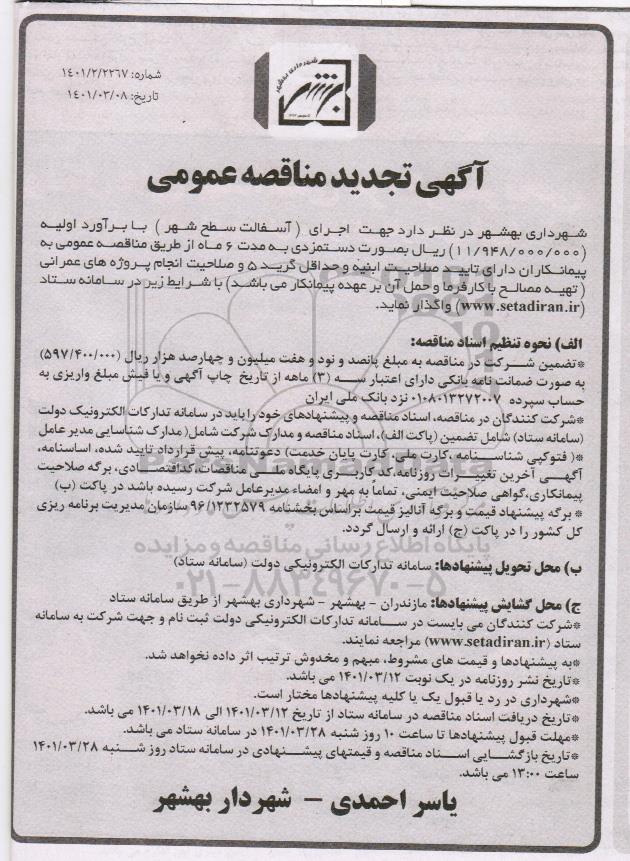 شهرداری بهشهر
بهشهر
شماره: ۱۴۰۱/۲/۲۲۶۷
تاریخ: ۱۴۰۱/۰۳/۰۸
آگهی تجدید مناقصه عمومی
شهرداری بهشهر در نظر دارد جهت اجرای ( آسفالت سطح شهر ) با برآورد اولیه
(۱۱/۹۴۸/۰۰۰/۰۰۰) ریال بصورت دستمزدی به مدت ۶ ماه از طریق مناقصه عمومی به
پیمانکاران دارای تایید صلاحیت ابنیه و حداقل گرید ۵ و صلاحیت انجام پروژه های عمرانی
( تهیه مصالح با کارفرما و حمل آن بر عهده پیمانکار می باشد) با شرایط زیر در سامانه ستاد
(www.setadiran.ir) واگذار نماید.
الف) نحوه تنظیم اسناد مناقصه:
*تضمین شرکت در مناقصه به مبلغ پانصد و نود و هفت میلیون و چهارصد هزار ریال (۵۹۷/۴۰۰/۰۰۰)
به صورت ضمانت نامه بانکی دارای اعتبار سه (۳) ماهه از تاریخ چاپ آگهی و یا فیش مبلغ واریزی به
حساب سپرده ۰۱۰۸۰۱۳۲۷۲۰۰۷ نزد بانک ملی ایران
*شرکت کنندگان در مناقصه، اسناد مناقصه و پیشنهادهای خود را باید در سامانه تدارکات الکترونیک دولت
(سامانه ستاد) شامل تضمین (پاکت الف)، اسناد مناقصه و مدارک شرکت شامل( مدارک شناسایی مدیر عامل
*( فتوکپی شناسنامه ،کارت ملی، کارت پایان خدمت) دعوتنامه، پیش قرارداد تایید شده، اساسنامه،
آگهی آخرین تغییرات روزنامه، کد کاربری پایگاه ملی مناقصات، کداقتصادی، برگه صلاحیت
پیمانکاری، گواهی صلاحیت ایمنی، تماماً به مهر و امضاء مدیرعامل شرکت رسیده باشد در پاکت (ب)
* برگه پیشنهاد قیمت و برگه آنالیز قیمت براساس بخشنامه ۹۶/۱۲۳۲۵۷۹ سازمان مدیریت برنامه ریزی
کل کشور را در پاکت (ج) ارائه و ارسال گردد.
پایگاه اطلاع رسانی مناقصه و مزایده
ب) محل تحویل پیشنهادها: سامانه تدارکات الکترونیکی دولت (سامانه ستاد)
۰۲۱-۸۸۳۴۹۶۷۰-۵
ج) محل گشایش پیشنهادها: مازندران - بهشهر - شهرداری بهشهر از طریق سامانه ستاد
*شرکت کنندگان می بایست در سامانه تدارکات الکترونیکی دولت ثبت نام و جهت شرکت به سامانه
ستاد (www.setadiran.ir) مراجعه نمایند.
*به پیشنهادها و قیمت های مشروط، مبهم و مخدوش ترتیب اثر داده نخواهد شد.
*تاریخ نشر روزنامه در یک نوبت ۱۴۰۱/۰۳/۱۲ می باشد.
*شهرداری در رد یا قبول یک یا کلیه پیشنهادها مختار است.
*تاریخ دریافت اسناد مناقصه در سامانه ستاد از تاریخ ۱۴۰۱/۰۳/۱۲ الی ۱۴۰۱/۰۳/۱۸ می باشد.
*مهلت قبول پیشنهادها تا ساعت ۱۰ روز شنبه ۱۴۰۱/۰۳/۲۸ در سامانه ستاد می باشد.
*تاریخ بازگشایی اسناد مناقصه و قیمتهای پیشنهادی در سامانه ستاد روز شنبه ۱۴۰۱/۰۳/۲۸
ساعت ۱۳:۰۰ می باشد.
یاسر احمدی - شهردار بهشهر